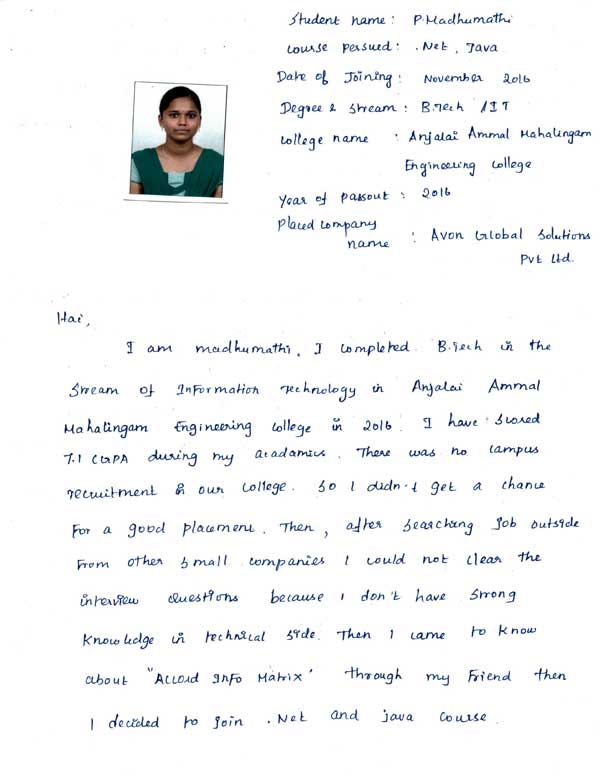 Student name : P.Madhumathi
Course Persued : .Net, Java
Date of Joining : November 2016
Degree & Stream : B.Tech / IT
College name : Anjalai Ammal Mahalingam
Engineering College
Year of Passout : 2016
Placed Company
name : Avon Global Solutions
Pvt Ltd.
Hai,
I am madhumathi. I completed B.Tech in the
Stream of Information Technology in Anjalai Ammal
Mahalingam Engineering College in 2016. I have scored
7.1 CGPA during my acadamics. There was no campus
recruitment in our college. So I didn't get a chance
For a good placement. Then, after searching job outside
From other small companies I could not clear the
interview questions because I don't have strong
Knowledge in technical side. Then I came to know
about "Accord Info Matrix" through my Friend then
I decided to join .Net and java course.